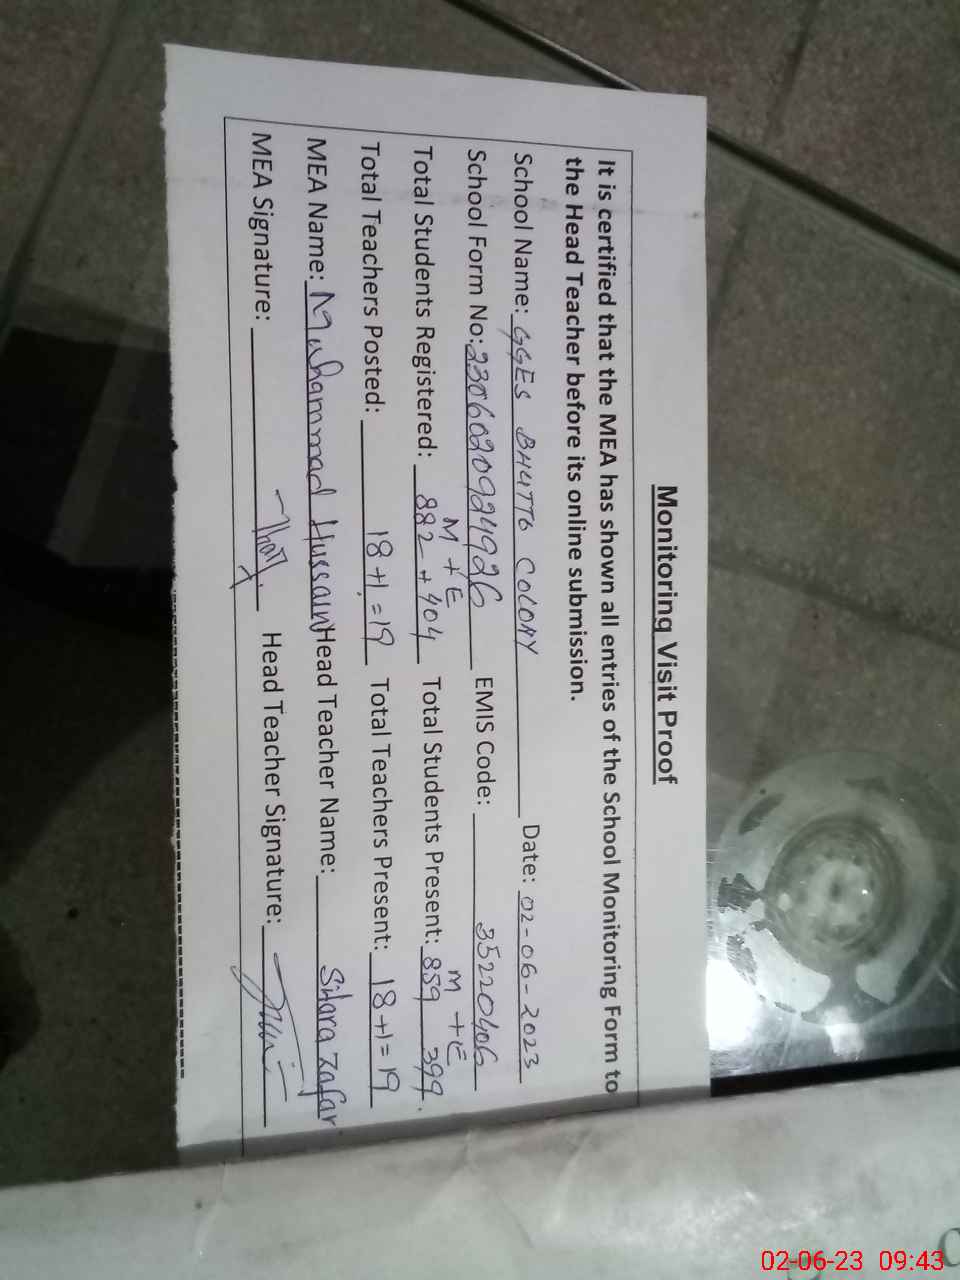 Monitoring Visit Proof
It is certified that the MEA has shown all entries of the School Monitoring Form to
the Head Teacher before its online submission.
School Name: GGES BHUTTO COLONY Date: 02-06-2023
School Form No: 2306020924926 EMIS Code: 35220406
M + E M + E
Total Students Registered: 882 + 404 Total Students Present: 859 399.
Total Teachers Posted: 18+1=19 Total Teachers Present: 18+1=19
MEA Name: Muhammad Hussain Head Teacher Name: Sitara Zafar
MEA Signature: Head Teacher Signature:
02-06-23 09:43